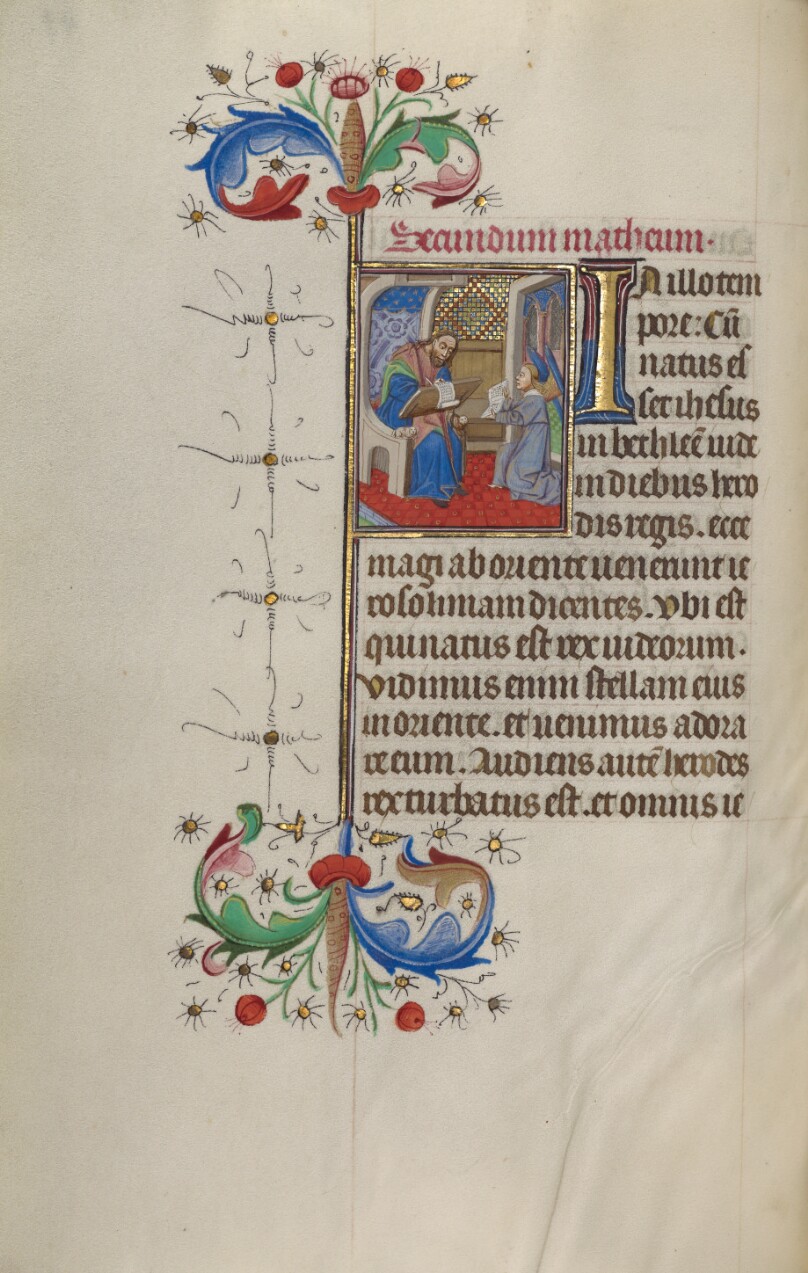 Secundum matheum.
IN illo tem
pore: Cū
natus es
set ihesus
in bethleē iude
in diebus hero
dis regis. ecce
magi ab oriente uenerunt ie
rosolimam dicentes. Vbi est
qui natus est rex iudeorum.
Vidimus enim stellam eius
in oriente. et uenimus adora
re eum. Audiens autē herodes
rex turbatus est. et omnis ie